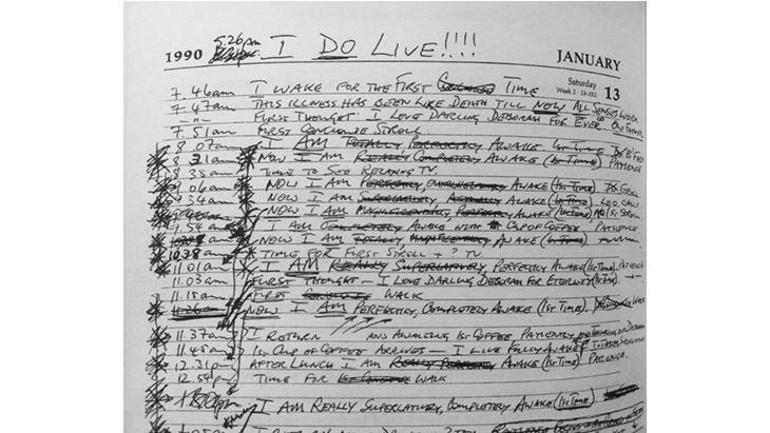 1990 5.26pm I DO LIVE!!!! JANUARY
Saturday 13
Week 2 · 13-352
7.46am I WAKE FOR THE FIRST TIME
7.47am THIS ILLNESS HAS BEEN LIKE DEATH TILL NOW ALL SENSES WORK
-"- FIRST THOUGHT I LOVE DARLING DEBORAH FOR EVER
7.51am FIRST CONCLUDE STROLL
8.07am I AM TOTALLY, PERFECTLY AWAKE (1st TIME)
8.31am NOW I AM REALLY COMPLETELY AWAKE (1st TIME) PATIENCE
8.35am TIME TO SEE RELAXING TV.
9.06am NOW I AM PERFECTLY, OVERWHELMINGLY AWAKE (1st TIME)
9.34am NOW I AM SUPERLATIVELY, ACTUALLY AWAKE (1st TIME)
NOW I AM MAGNIFICENTLY, PERFECTLY AWAKE (1st TIME) STROLL
9.54am I AM COMPLETELY AWAKE WITH CUP OF COFFEE PATIENCE
NOW I AM TOTALLY, MAGNIFICENTLY AWAKE (1st TIME)
10.38am TIME FOR FIRST STROLL + ? TV
11.01am I AM REALLY SUPERLATIVELY, PERFECTLY AWAKE (1st TIME) PATIENCE
11.03am FIRST THOUGHT — I LOVE DARLING DEBORAH FOR ETERNITY (1st TIME)
11.15am FIRST WALK
11.26am NOW I AM PERFECTLY, COMPLETELY AWAKE (1st TIME) WALK
11.37am I RETURN AND AWAITING 1st COFFEE PATIENTLY
11.45am 1st CUP OF COFFEE ARRIVES — I LIVE FULLY AWAKE
12.31pm AFTER LUNCH I AM REALLY PERFECTLY AWAKE (1st TIME) PATIENCE.
12.54pm TIME FOR WALK
I AM REALLY SUPERLATIVELY, COMPLETELY AWAKE (1st TIME)